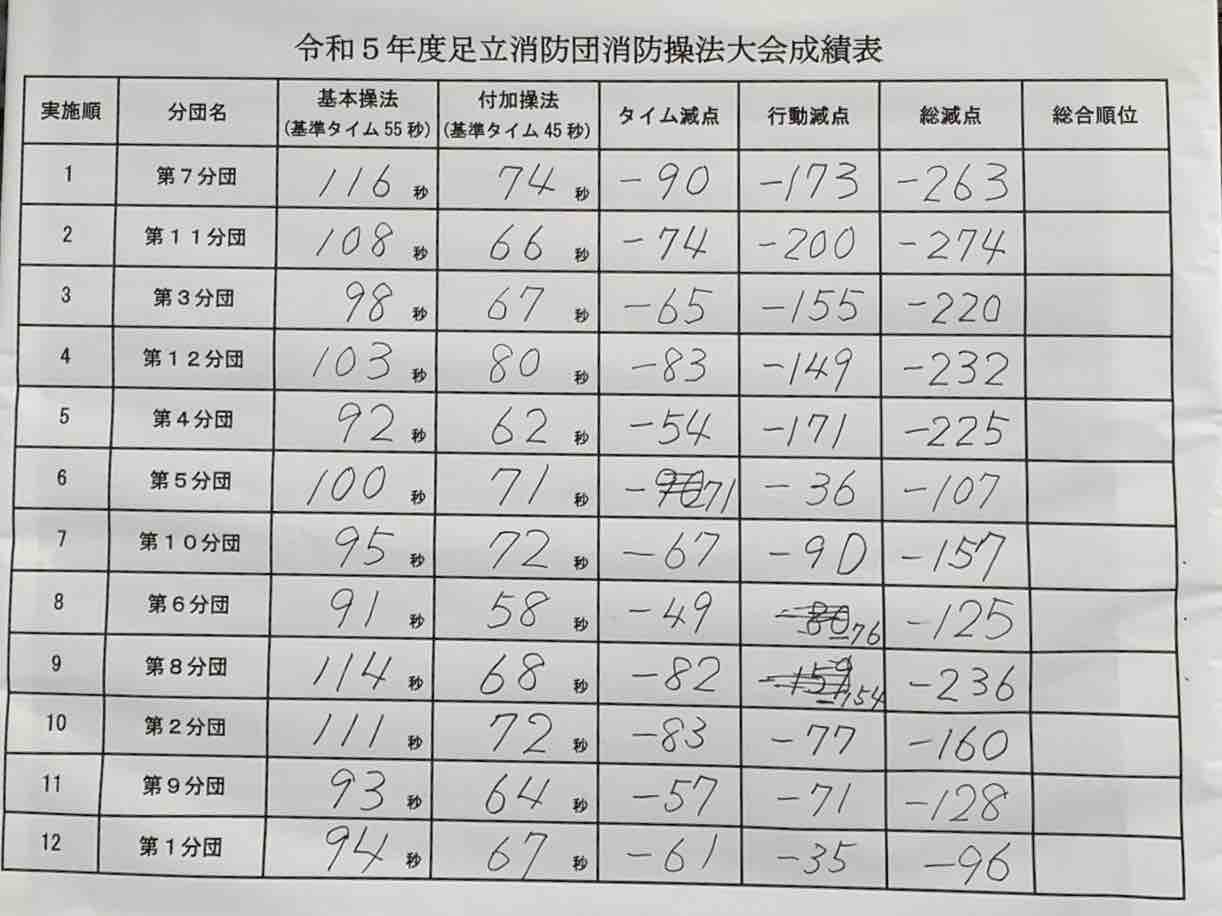 令和５年度足立消防団消防操法大会成績表
実施順 分団名 基本操法 (基準タイム55秒) 付加操法 (基準タイム45秒) タイム減点 行動減点 総減点 総合順位
1 第７分団 116秒 74秒 -90 -173 -263
2 第１１分団 108秒 66秒 -74 -200 -274
3 第３分団 98秒 67秒 -65 -155 -220
4 第１２分団 103秒 80秒 -83 -149 -232
5 第４分団 92秒 62秒 -54 -171 -225
6 第５分団 100秒 71秒 -71 -36 -107
7 第１０分団 95秒 72秒 -67 -90 -157
8 第６分団 91秒 58秒 -49 -76 -125
9 第８分団 114秒 68秒 -82 -154 -236
10 第２分団 111秒 72秒 -83 -77 -160
11 第９分団 93秒 64秒 -57 -71 -128
12 第１分団 94秒 67秒 -61 -35 -96